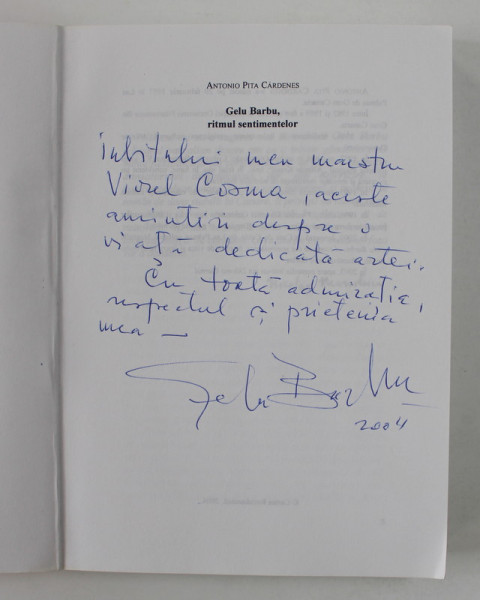 ANTONIO PITA CÁRDENES
Gelu Barbu,
ritmul sentimentelor
Iubitului meu maestru
Viorel Cosma, aceste
amintiri despre o
viată dedicată artei.
Cu toată admirația,
respectul și prietenia
mea —
Gelu Barbu
2004